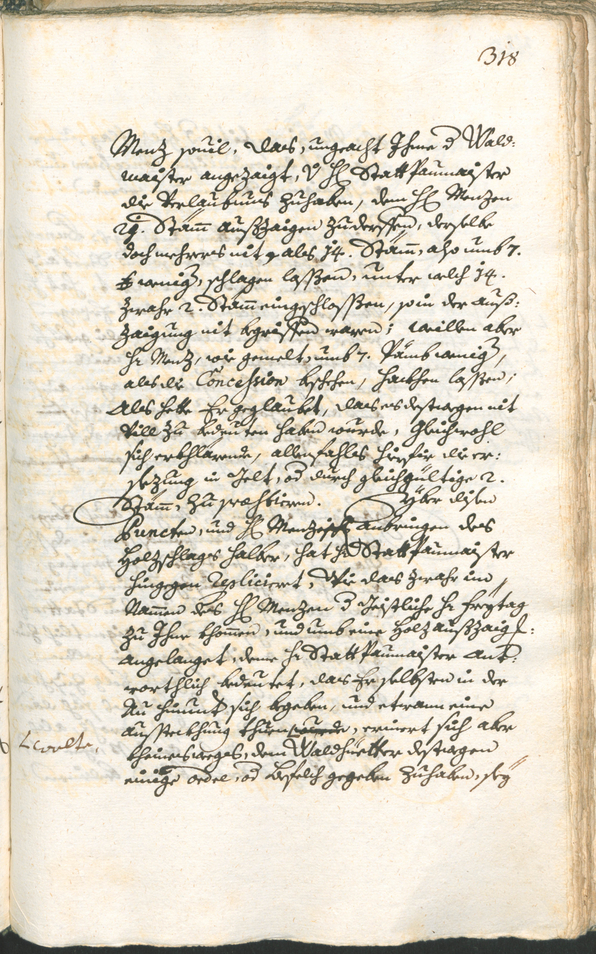 318
Mentz souil, dass, ungeacht Ihme d Wald:
maister angezaigt, v. H: Statt Paumaister
die Verlaubnus zuhaben, dem H: Menzen
29. Stämm außzaigen zuderffen, derselbe
doch mehrers nit, als 14. Stämm, also umb 7.
wenig, schlagen lassen, unter welch 14.
zwahr 2. Stämm eingschlossen, so in der auß:
zaigung nit begriffen waren; weillen aber
H: Mentz, wie gemelt, umb 7. Pämb wenig,
als die Concession beschehen, hackhen lassen;
Als hette Er geglaubet, dass es destwegen nit
vill zu bedeuten haben wurde, Gleichwohl
sich erkhlärende, allenfahls hierfür die er:
sezung in Gelt, od durch gleichgültige 2.
Stämm, zu præstieren. Yber disen
Puncten, und H: Menzen anbringen des
Holzschlags halber, hat H: Statt Paumaister
hingegen repliciert, wie das zwahr im
Nammen des H: Menzen d Geistliche H: Freytag
zu Ihme khommen, und umb eine Holz außzaig:
angelanget, deme H: Statt Paumaister ant:
worthlich bedeutet, dass Er selbsten in der
Au hinunt sich begeben, und etwann eine
aussteckhung thuen wurde, erinert sich aber
woelte,
kheinesweegs, dem Waldhüetter destwegen
einige ordre, od befelch gegeben zuhaben, sey